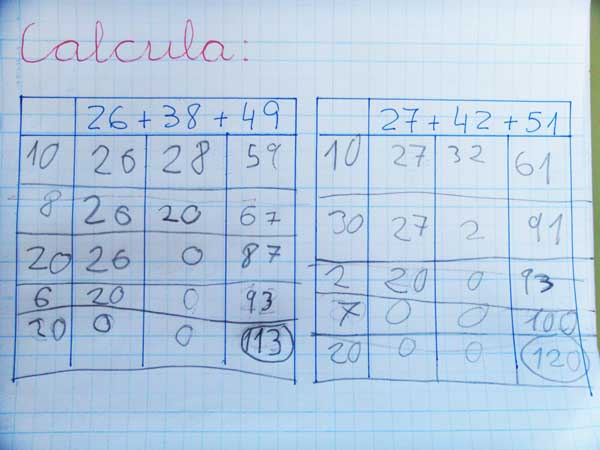 Calcula:
26 + 38 + 49
10 26 28 59
8 26 20 67
20 26 0 87
6 20 0 93
20 0 0 113
27 + 42 + 51
10 27 32 61
30 27 2 91
2 20 0 93
7 0 0 100
20 0 0 120